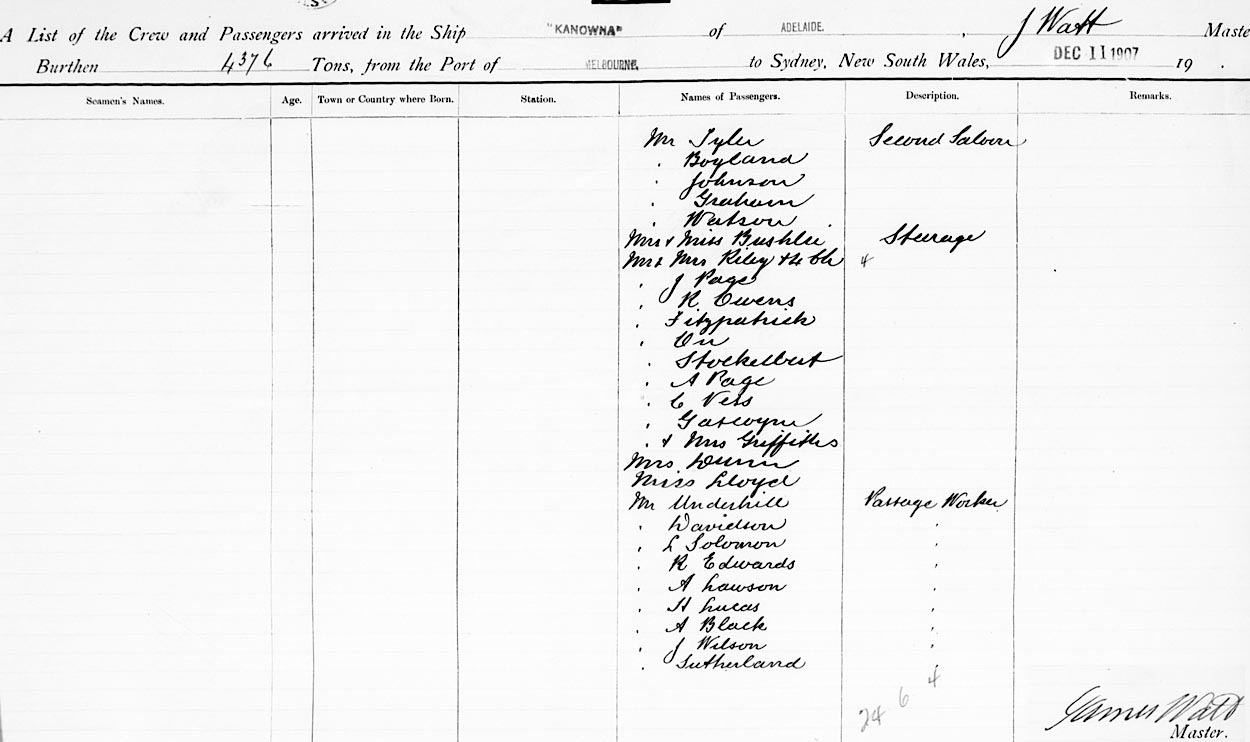 A List of the Crew and Passengers arrived in the Ship "KANOWNA" of ADELAIDE. , J Watt Maste
Burthen 4376 Tons, from the Port of MELBOURNE, to Sydney, New South Wales, DEC 11 1907 19 .
Seamen's Names. Age. Town or Country where Born. Station. Names of Passengers. Description. Remarks.
Mr Tyler Second Saloon
" Boyland
" Johnson
" Graham
" Watson
Mrs & Miss Bushlie Steerage
Mr & Mrs Riley & 4 Ch 4
" J Page
" R Owens
" Fitzpatrick
" Orr
" Stockelbert
" A Page
" C Vess
" Gascoyne
" & Mrs Griffiths
Mrs Dunn
Miss Lloyd
Mr Underhill Passage Worker
" Davidson "
" L Solomon "
" R Edwards "
" A Lawson "
" H Lucas "
" A Black "
" J Wilson "
" Sutherland "
24 6 4
James Watt
Master.